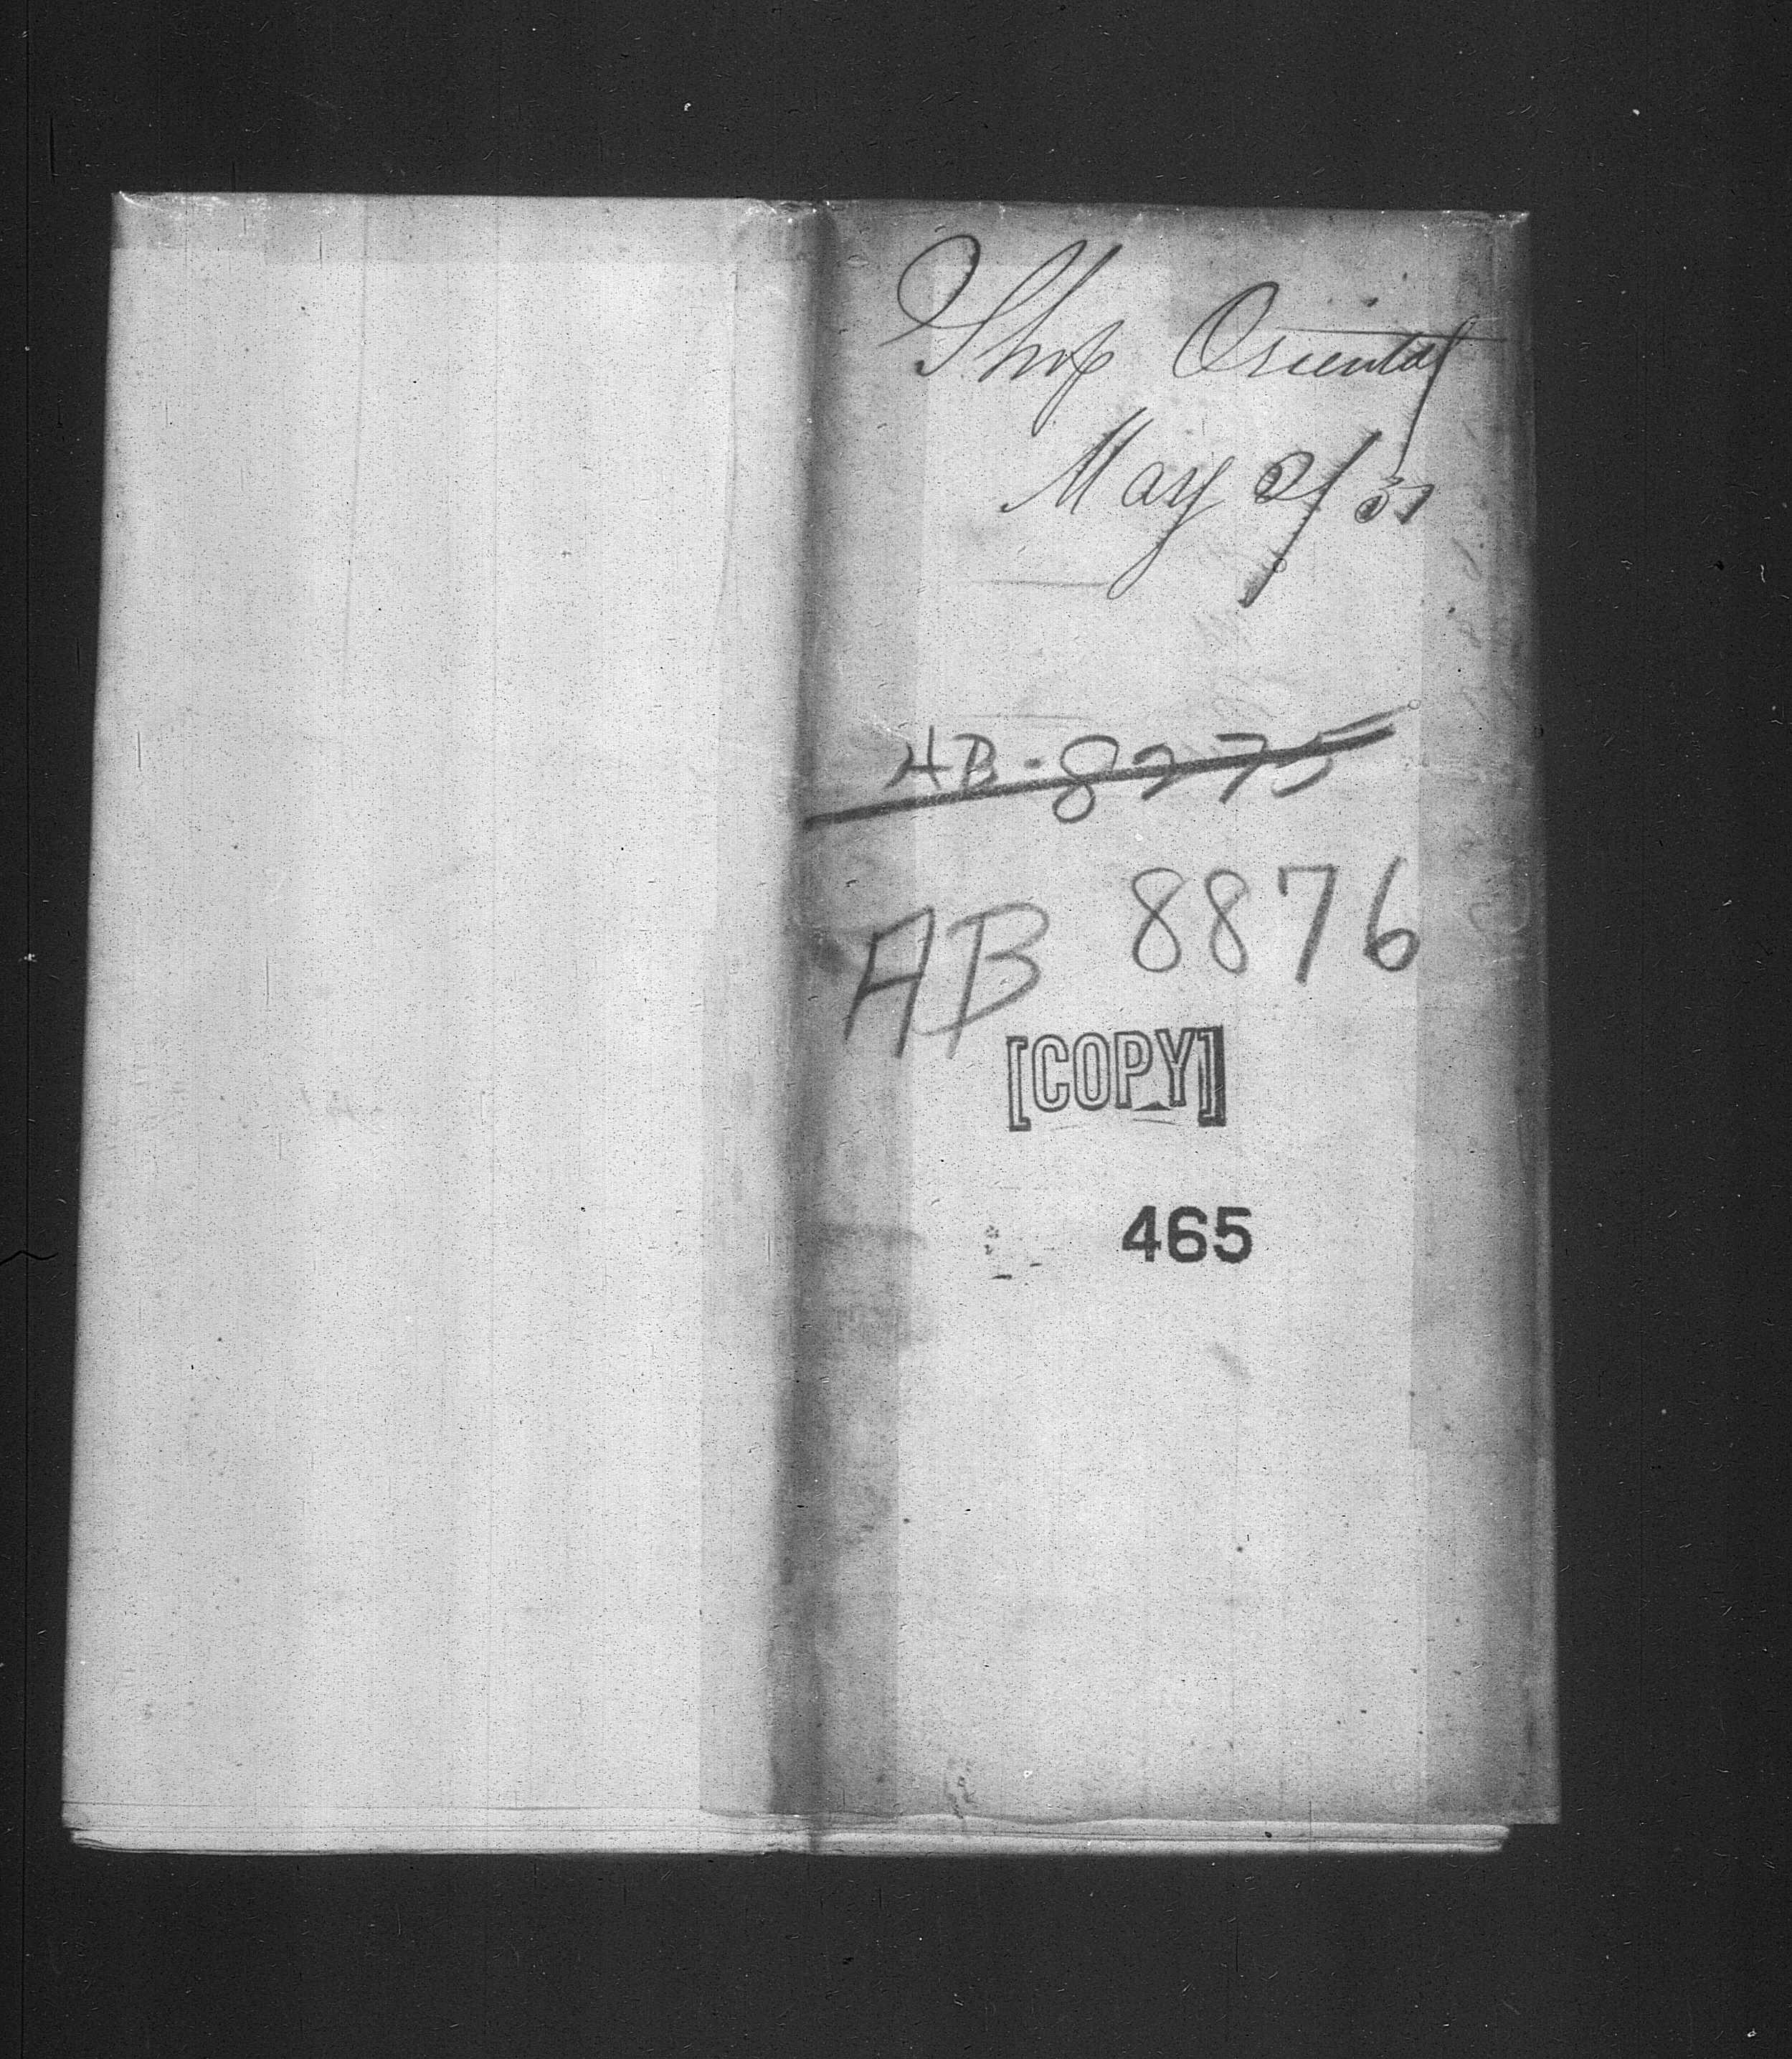 Ship Oriental
May 2/37
AB-8275
AB 8876
[COPY]
465